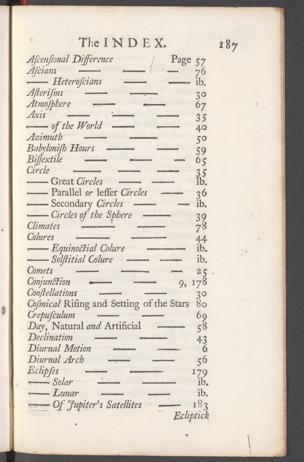 The INDEX. 187
Aſcenſional Difference Page 57
Aſcians — — — 76
— Heteroſcians — — ib.
Aſteriſms — — — 30
Atmoſphere — — — 67
Axis — — — 35
— of the World — — 40
Azimuth — — — 50
Babyloniſh Hours — — — 59
Biſſextile — — — 65
Circle — — — 35
— Great Circles — — ib.
— Parallel or leſſer Circles — 36
— Secondary Circles — — ib.
— Circles of the Sphere — — 39
Climates — — — 78
Colures — — — 44
— Equinoctial Colure — — ib.
— Solſtitial Colure — — ib.
Comets — — — 25
Conjunction — — 9, 178
Conſtellations — — — 30
Coſmical Riſing and Setting of the Stars 80
Crepuſculum — — — 69
Day, Natural and Artificial — — 58
Declination — — — 43
Diurnal Motion — — — 6
Diurnal Arch — — — 56
Eclipſes — — — 179
— Solar — — ib.
— Lunar — — ib.
— Of Jupiter's Satellites — 183
Ecliptick